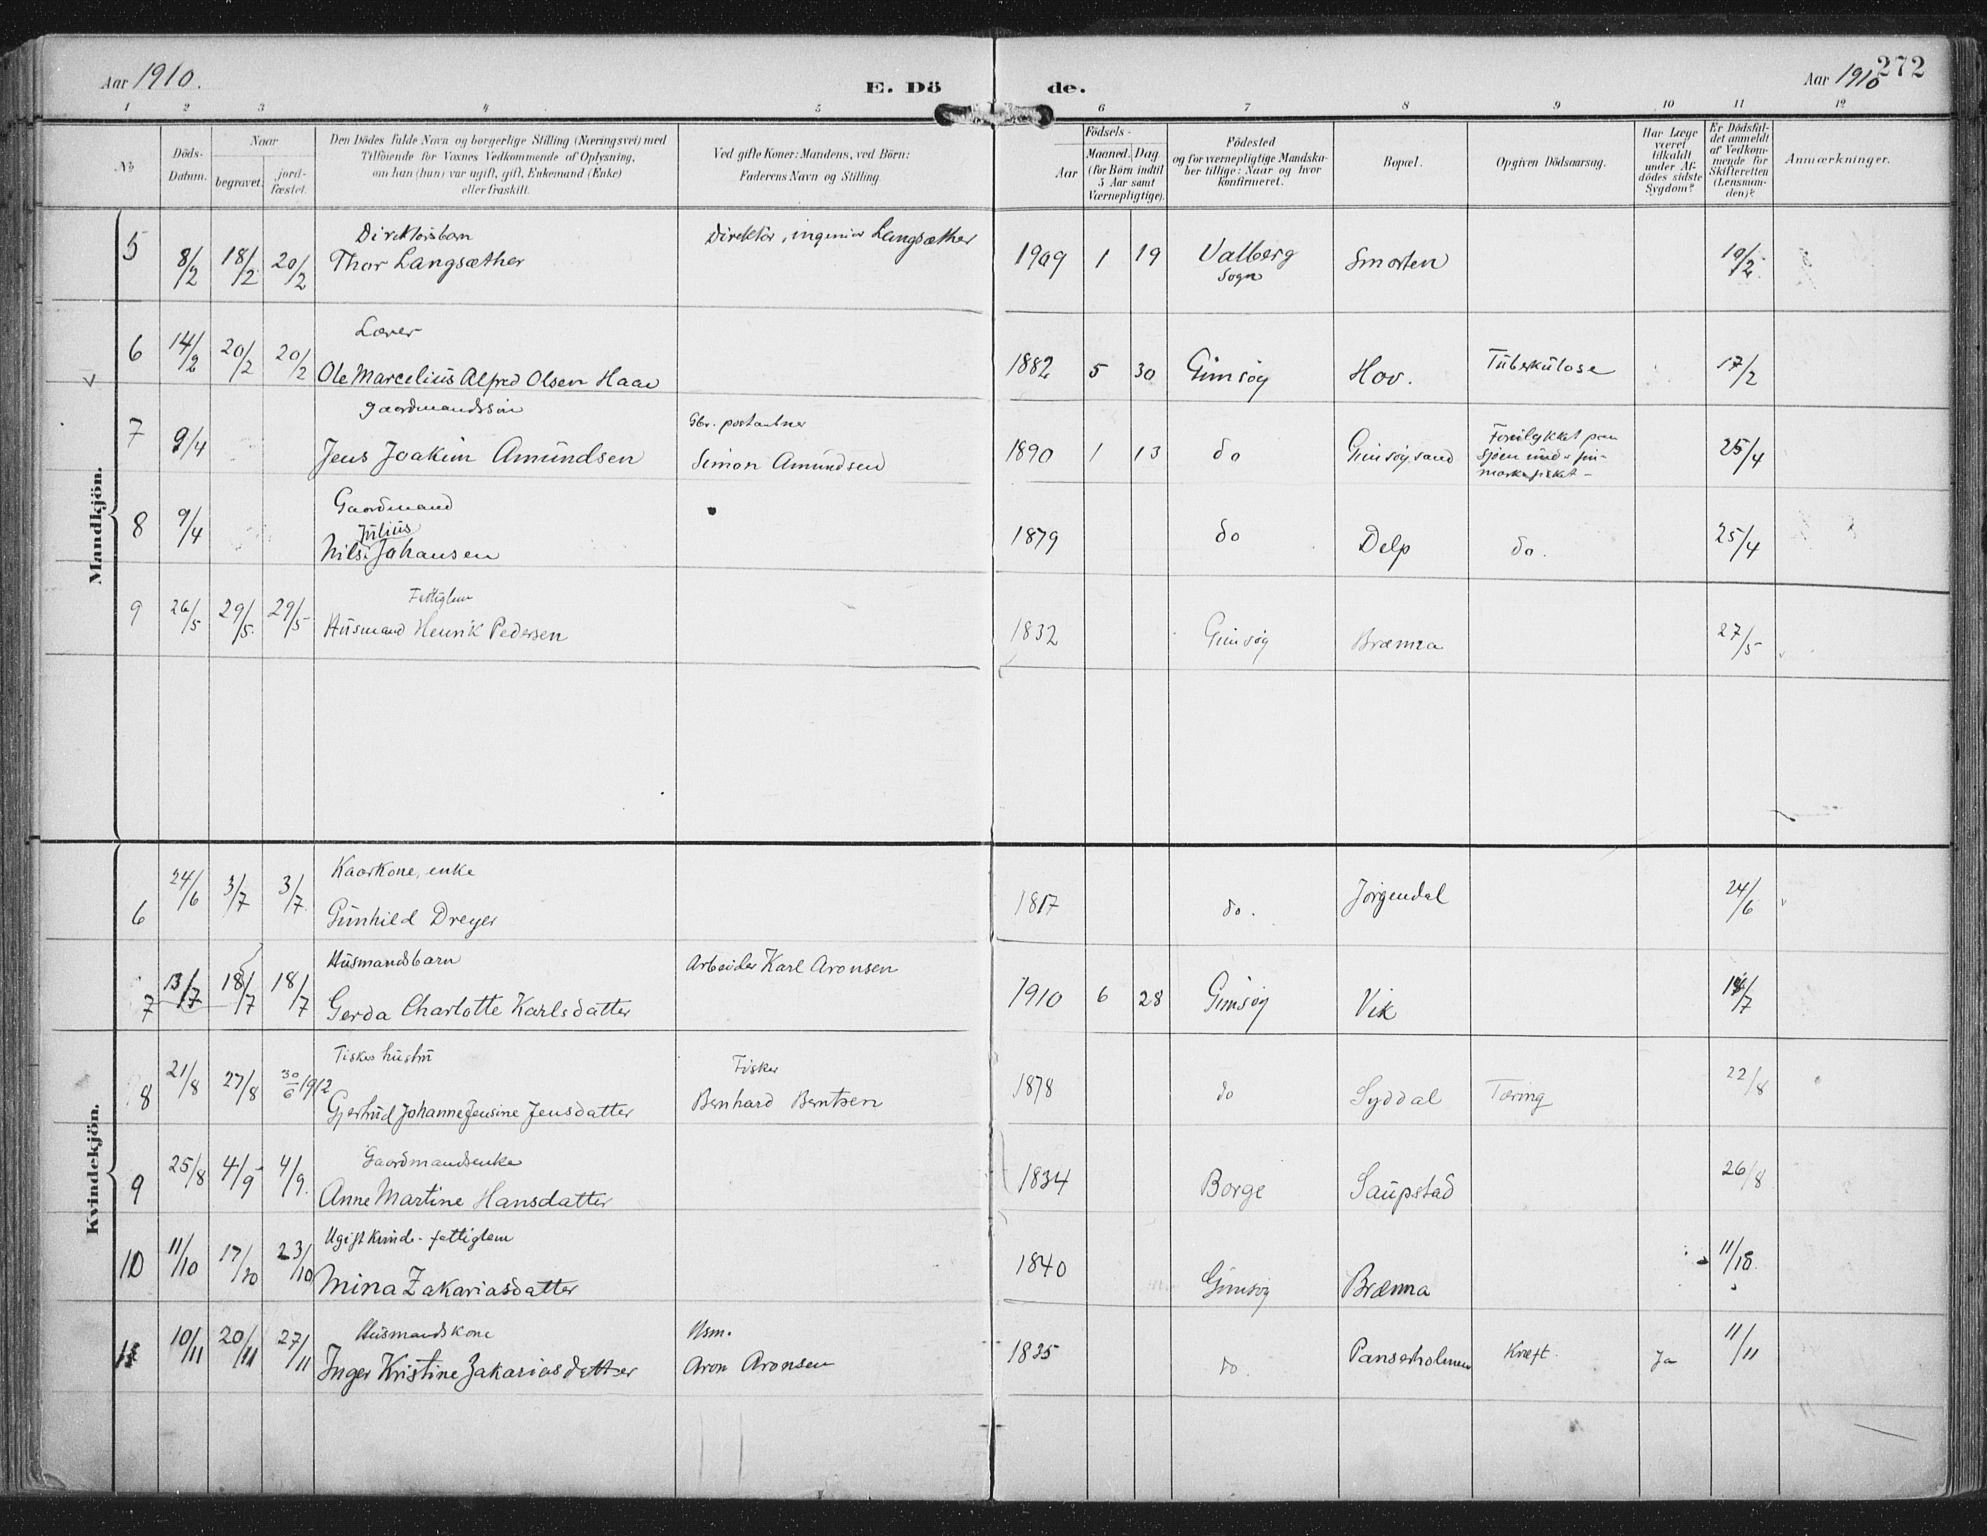 Aar 1910.
E. Dö
de.
Aar 1910
272
1 2 3 4 5 6 7 8 9 10 11 12
No
Döds-Datum.
Naar
begravet.
jord-fæstet.
Den Dödes fulde Navn og borgerlige Stilling (Næringsvei) med
Tilföiende for Voxnes Vedkommende af Oplysning,
om han (hun) var ugift, gift, Enkemand (Enke)
eller fraskilt.
Ved gifte Koner: Mandens, ved Börn:
Faderens Navn og Stilling.
Födsels-
Aar
Maaned. Dag
(for Börn indtil
5 Aar samt
Værnepligtige).
Födested
og for værnepligtige Mandska-
ber tillige: Naar og hvor
konfirmeret.
Bopæl.
Opgiven Dödsaarsag.
Har Læge
været
tilkaldt
under Af-
dödes sidste
Sygdom?
Er Dödsfal-
det anmeldt
af Vedkom-
mende for
Skifteretten
(Lensman-
den)?
Anmærkninger.
Mandkjön.
Direktörsbarn Direktör, ingeniør Langsæther
5 8/2 18/2 20/2 Thor Langsæther 1909 1 19 Valberg Sogn Smorten 19/2
Lærer
6 14/2 20/2 20/2 Ole Marcelius Alfred Olsen Haav 1882 5 30 Gimsøy Hov. Tuberkulose 17/2
gaardmandssøn Gbr. postaabner
7 9/4 Jens Joakim Amundsen Simon Amundsen 1890 1 13 do Gimsøysand Forulykket paa sjøen under fin-markfisket - 25/4
Gaardmand
8 9/4 Nils Julius Johansen 1879 do Delp do. 25/4
Fattiglem
9 26/5 29/5 29/5 Husmand Henrik Pedersen 1832 Gimsøy Brænna 27/5
Kvindekjön.
Kaarkone, enke
6 24/6 3/7 3/7 Gunhild Dreyer 1817 do. Jørgendal 24/6
Husmandsbarn Arbeider Karl Aronsen
7 13/7 18/7 18/7 Gerda Charlotte Karlsdatter 1910 6 28 Gimsøy Vik
Fiskers hustru Fisker
8 21/8 27/8 30/6 1912 Gjertrud Johanne Jensine Jensdatter Bernhard Berntsen 1878 do Syddal Tæring 22/8
Gaardmandsenke
9 25/8 4/9 4/9. Anne Martine Hansdatter 1834 Borge Saupstad 26/8
Ugift kvinde - fattiglem
10 11/10 17/10 23/10 Mina Zakariasdatter 1840 Gimsøy Brænna 11/10.
Husmandskone Hsm.
11 10/11 20/11 27/11 Inger Kristine Zakariasdatter Aron Aronsen 1835 do. Panserholmen Kræft. Ja 11/11